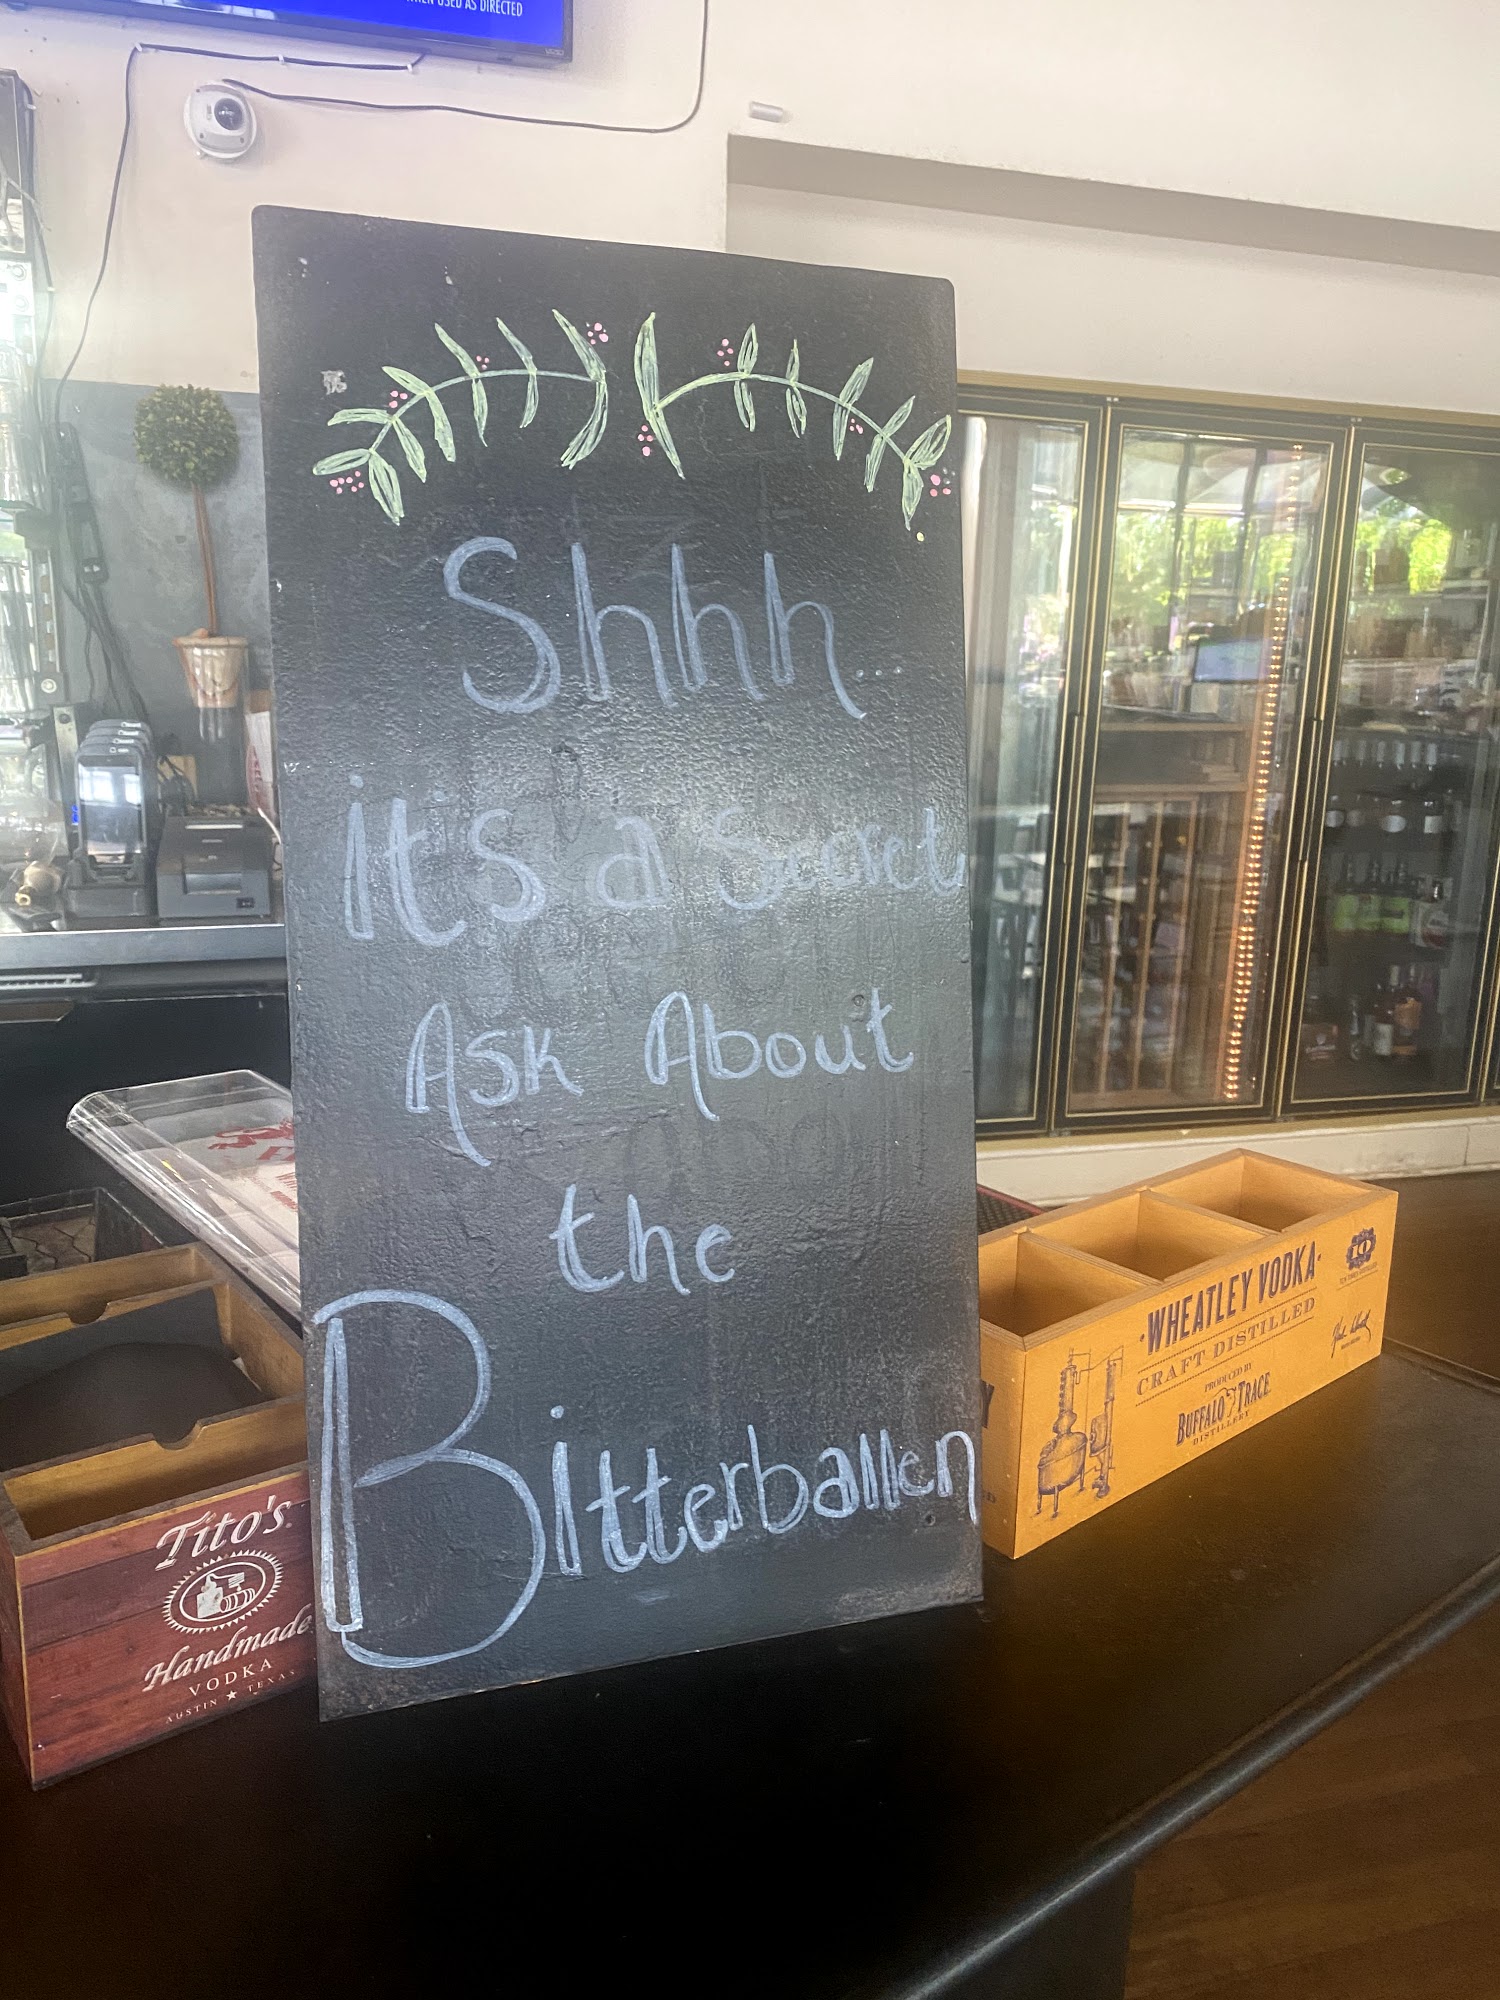 WHEN USED AS DIRECTED
VIZIO
Shhh...
it's a Secret
Ask About
the
Bitterballen
Tito's
Handmade
VODKA
AUSTIN ★ TEXAS
WHEATLEY VODKA
CRAFT DISTILLED
PRODUCED BY
BUFFALO TRACE
DISTILLERY
10